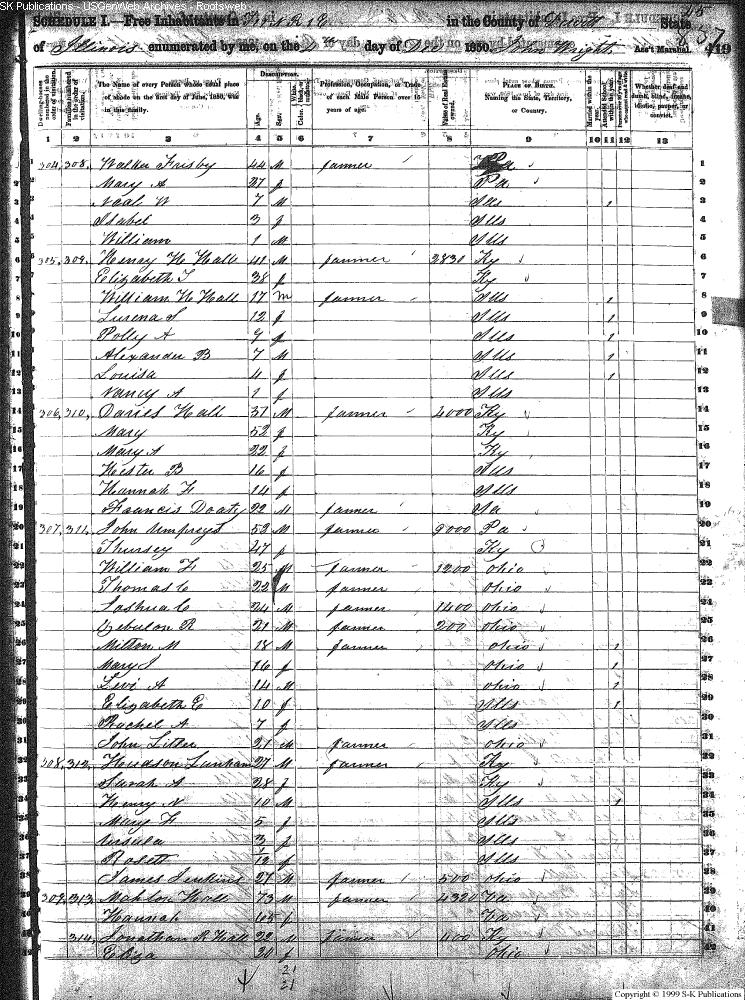 SK Publications - USGenWeb Archives - Rootsweb
SCHEDULE I.—Free Inhabitants in in the County of Dewitt State
of Illinois enumerated by me, on the day of Dec 1850. John Wright Ass't Marshal. 419
837
Dwelling-houses numbered in the order of visitation.
Families numbered in the order of visitation.
The Name of every Person whose usual place of abode on the first day of June, 1850, was in this family.
DESCRIPTION.
Age.
Sex.
Color.
Profession, Occupation, or Trade of each Male Person over 15 years of age.
Value of Real Estate owned.
PLACE OF BIRTH. Naming the State, Territory, or Country.
Married within the year.
Whether deaf and dumb, blind, insane, idiotic, pauper, or convict.
1 2 3 4 5 6 7 8 9 10 11 12 13
1 304 308 Walker Frisby 44 M farmer Pa 1
2 Mary A 27 f Pa 2
3 Neal W 7 M Ills 1 3
4 Isabel 3 f Ills 4
5 William 1 M Ills 5
6 305 309 Henry H Hall 41 M farmer 2830 Ky 6
7 Elizabeth T 38 f Ky 7
8 William H Hall 17 M farmer Ills 1 8
9 Lurena S 12 f Ills 1 9
10 Polly A 9 f Ills 1 10
11 Alexander B 7 M Ills 1 11
12 Louisa 4 f Ills 1 12
13 Nancy A 1 f Ills 13
14 306 310 Daries Hall 51 M farmer 4000 Ky 14
15 Mary 52 f Ky 15
16 Mary A 22 f Ky 16
17 Hester B 16 f Ills 17
18 Hannah F 14 f Ills 18
19 Francis Doaty 22 M farmer 19
20 307 311 John Umphreys 52 M farmer 9000 Pa 20
21 Thursey 47 f Ky 21
22 William F 25 M farmer 1200 Ohio 22
23 Thomas C 22 M farmer Ohio 23
24 Joshua C 24 M farmer 1400 Ohio 24
25 Zebulon R 21 M farmer 200 Ohio 25
26 Milton M 18 M farmer Ohio 1 26
27 Mary J 16 f Ohio 1 27
28 Levi A 14 M Ohio 1 28
29 Elizabeth E 10 f Ills 1 29
30 Rachel A 7 f Ills 30
31 John Litler 21 M farmer Ohio 31
32 308 312 Hudson Lanham 27 M farmer Ky 32
33 Sarah A 28 f Ky 33
34 Henry N 10 M Ills 1 34
35 Mary F 5 f Ills 35
36 Ursula 3 f Ills 36
37 Rosett f Ills 37
38 James Jenkins 27 M farmer 500 Ohio 38
39 309 313 Mahlon Hall 73 M farmer 4320 Va 39
40 Hannah 65 f Va 40
41 314 Jonathan R Hall 22 M farmer 400 Ky 41
42 Eliza 20 f Ohio 42
21
21
Copyright © 1999 S-K Publications